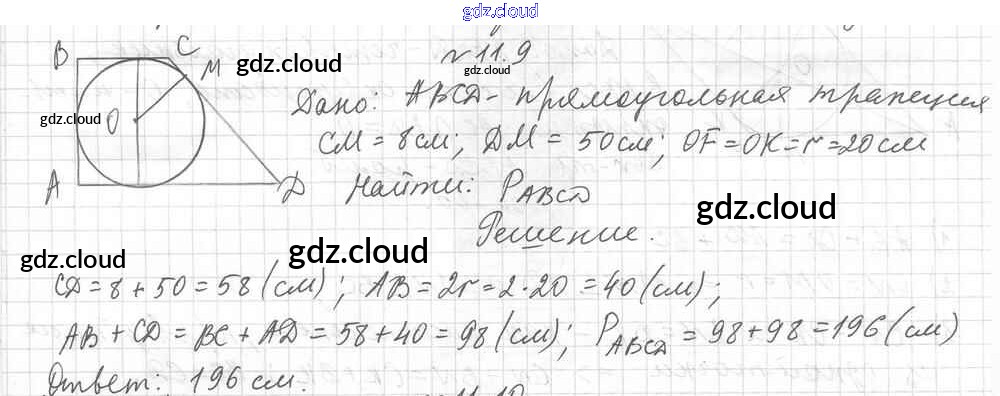 gdz.cloud
№ 11.9
gdz.cloud
gdz.cloud
B C M
gdz.cloud
gdz.cloud O
A D
Дано: ABCD - прямоугольная трапеция
CM = 8см; DM = 50см; OF = OK = r = 20см
Найти: P_ABCD
gdz.cloud
Решение.
gdz.cloud
gdz.cloud
CD = 8 + 50 = 58 (см); AB = 2r = 2·20 = 40 (см);
AB + CD = BC + AD = 58 + 40 = 98 (см); P_ABCD = 98 + 98 = 196 (см)
Ответ: 196 см.